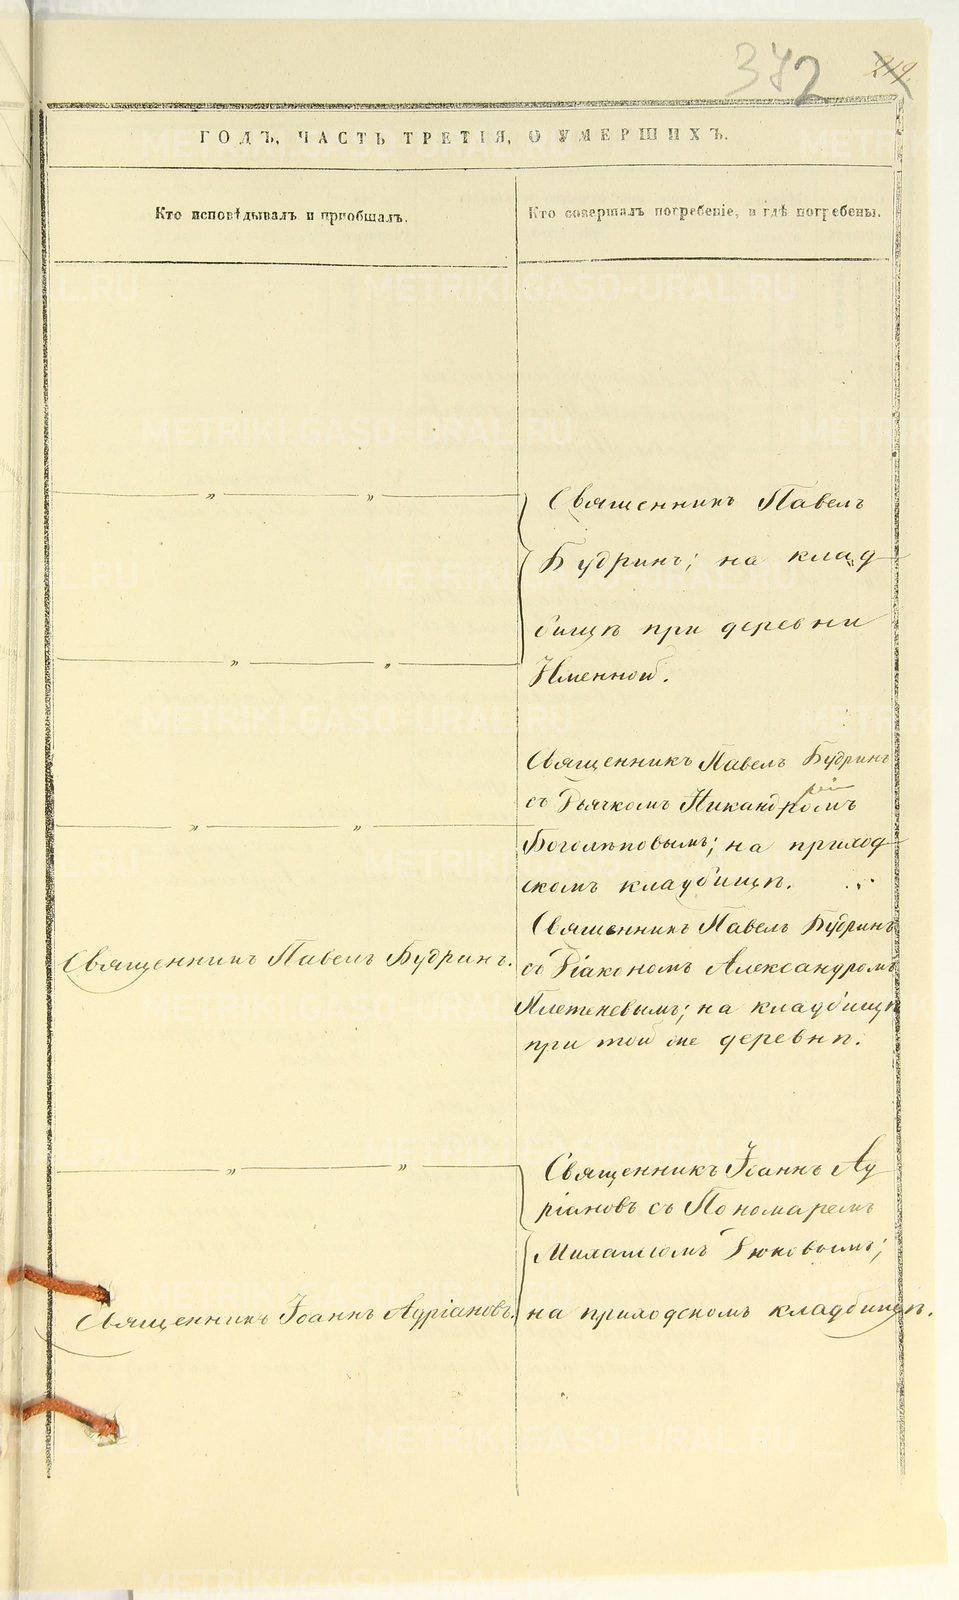 372
219.
ГОДЪ, ЧАСТЬ ТРЕТІЯ, О УМЕРШИХЪ.
Кто исповѣдывалъ и пріобщалъ.
Кто совершалъ погребеніе, и гдѣ погребены.
Священникъ Павелъ
Будринъ; на клад
бищѣ при деревни
Именной.
Священникъ Павелъ Будринъ
съ Дьячкомъ Никандромъ
Боголѣповымъ; на приход
скомъ кладбищѣ.
Священникъ Павелъ Будринъ.
Священникъ Павелъ Будринъ
съ Діакономъ Александромъ
Плетеневымъ; на кладбищѣ
при той же деревнѣ.
Священникъ Іоаннъ Ад
ріановъ съ Пономаремъ
Михаиломъ
Священникъ Іоаннъ Адріановъ.
на приходскомъ кладбищѣ.
METRIKI.GASO-URAL.RU